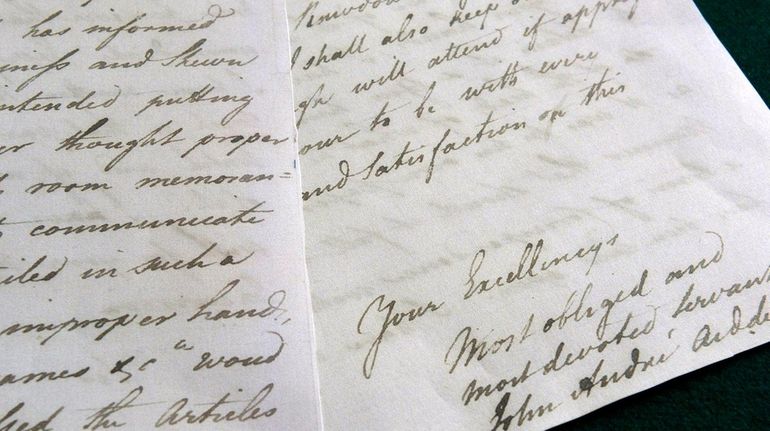 has informed
and shewn
intended putting
thought proper
room memoran=
communicate
in such a
improper hands,
names &ca. woud
the Articles
I shall also keep
will attend if
to be with every
and satisfaction on this
Your Excellencys
Most obliged and
most devoted servant
John André